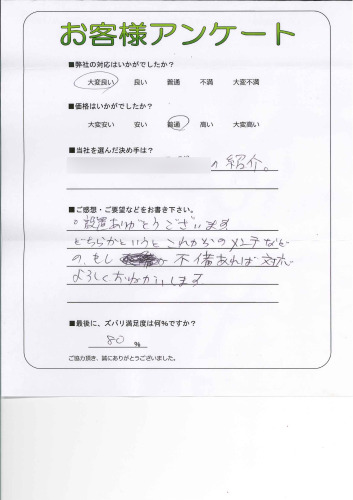 お客様アンケート
■弊社の対応はいかがでしたか?
大変良い 良い 普通 不満 大変不満
■価格はいかがでしたか?
大変安い 安い 普通 高い 大変高い
■当社を選んだ決め手は?
の紹介。
■ご感想・ご要望などをお書き下さい。
。設置ありがとうございます
どちらかというとこれからのメンテなど
の、もし 不備あれば対応
よろしくおねがいします
■最後に、ズバリ満足度は何%ですか?
80 %
ご協力頂き、誠にありがとうございました。